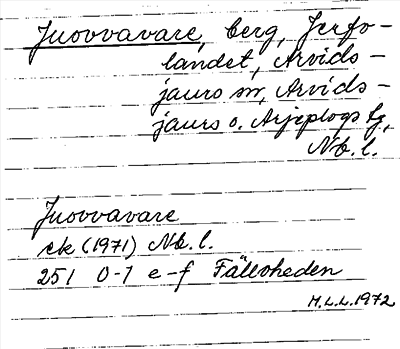 Juovvavare, berg, Jerfo-
landet, Arvids-
jaurs sn, Arvids-
jaurs o. Arjeplogs lg,
Nb. l.
Juovvavare
ek (1971) Nb. l.
25I 0-1 e-f Fällheden
H.L.L. 1972